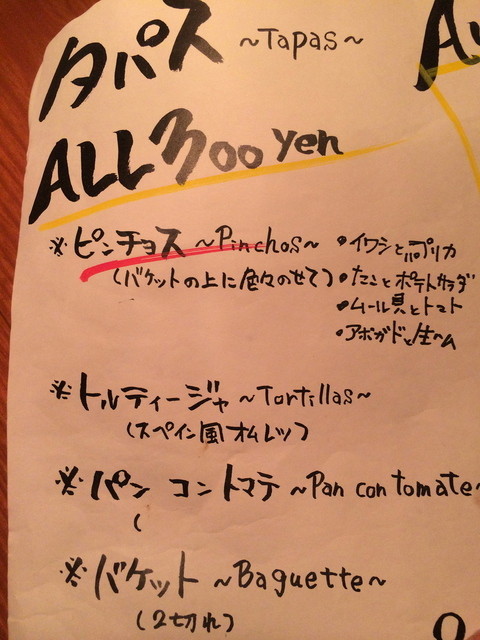 タパス ~Tapas~
ALL 300 yen
※ ピンチョス ~Pinchos~
(バケットの上に色々のせて)
・イワシとパプリカ
・たことポテトサラダ
・ムール貝とトマト
・アボガドと生ハム
※ トルティージャ ~Tortillas~
(スペイン風オムレツ)
※ パン コントマテ ~Pan con tomate~
(
※ バケット ~Baguette~
(2切れ)